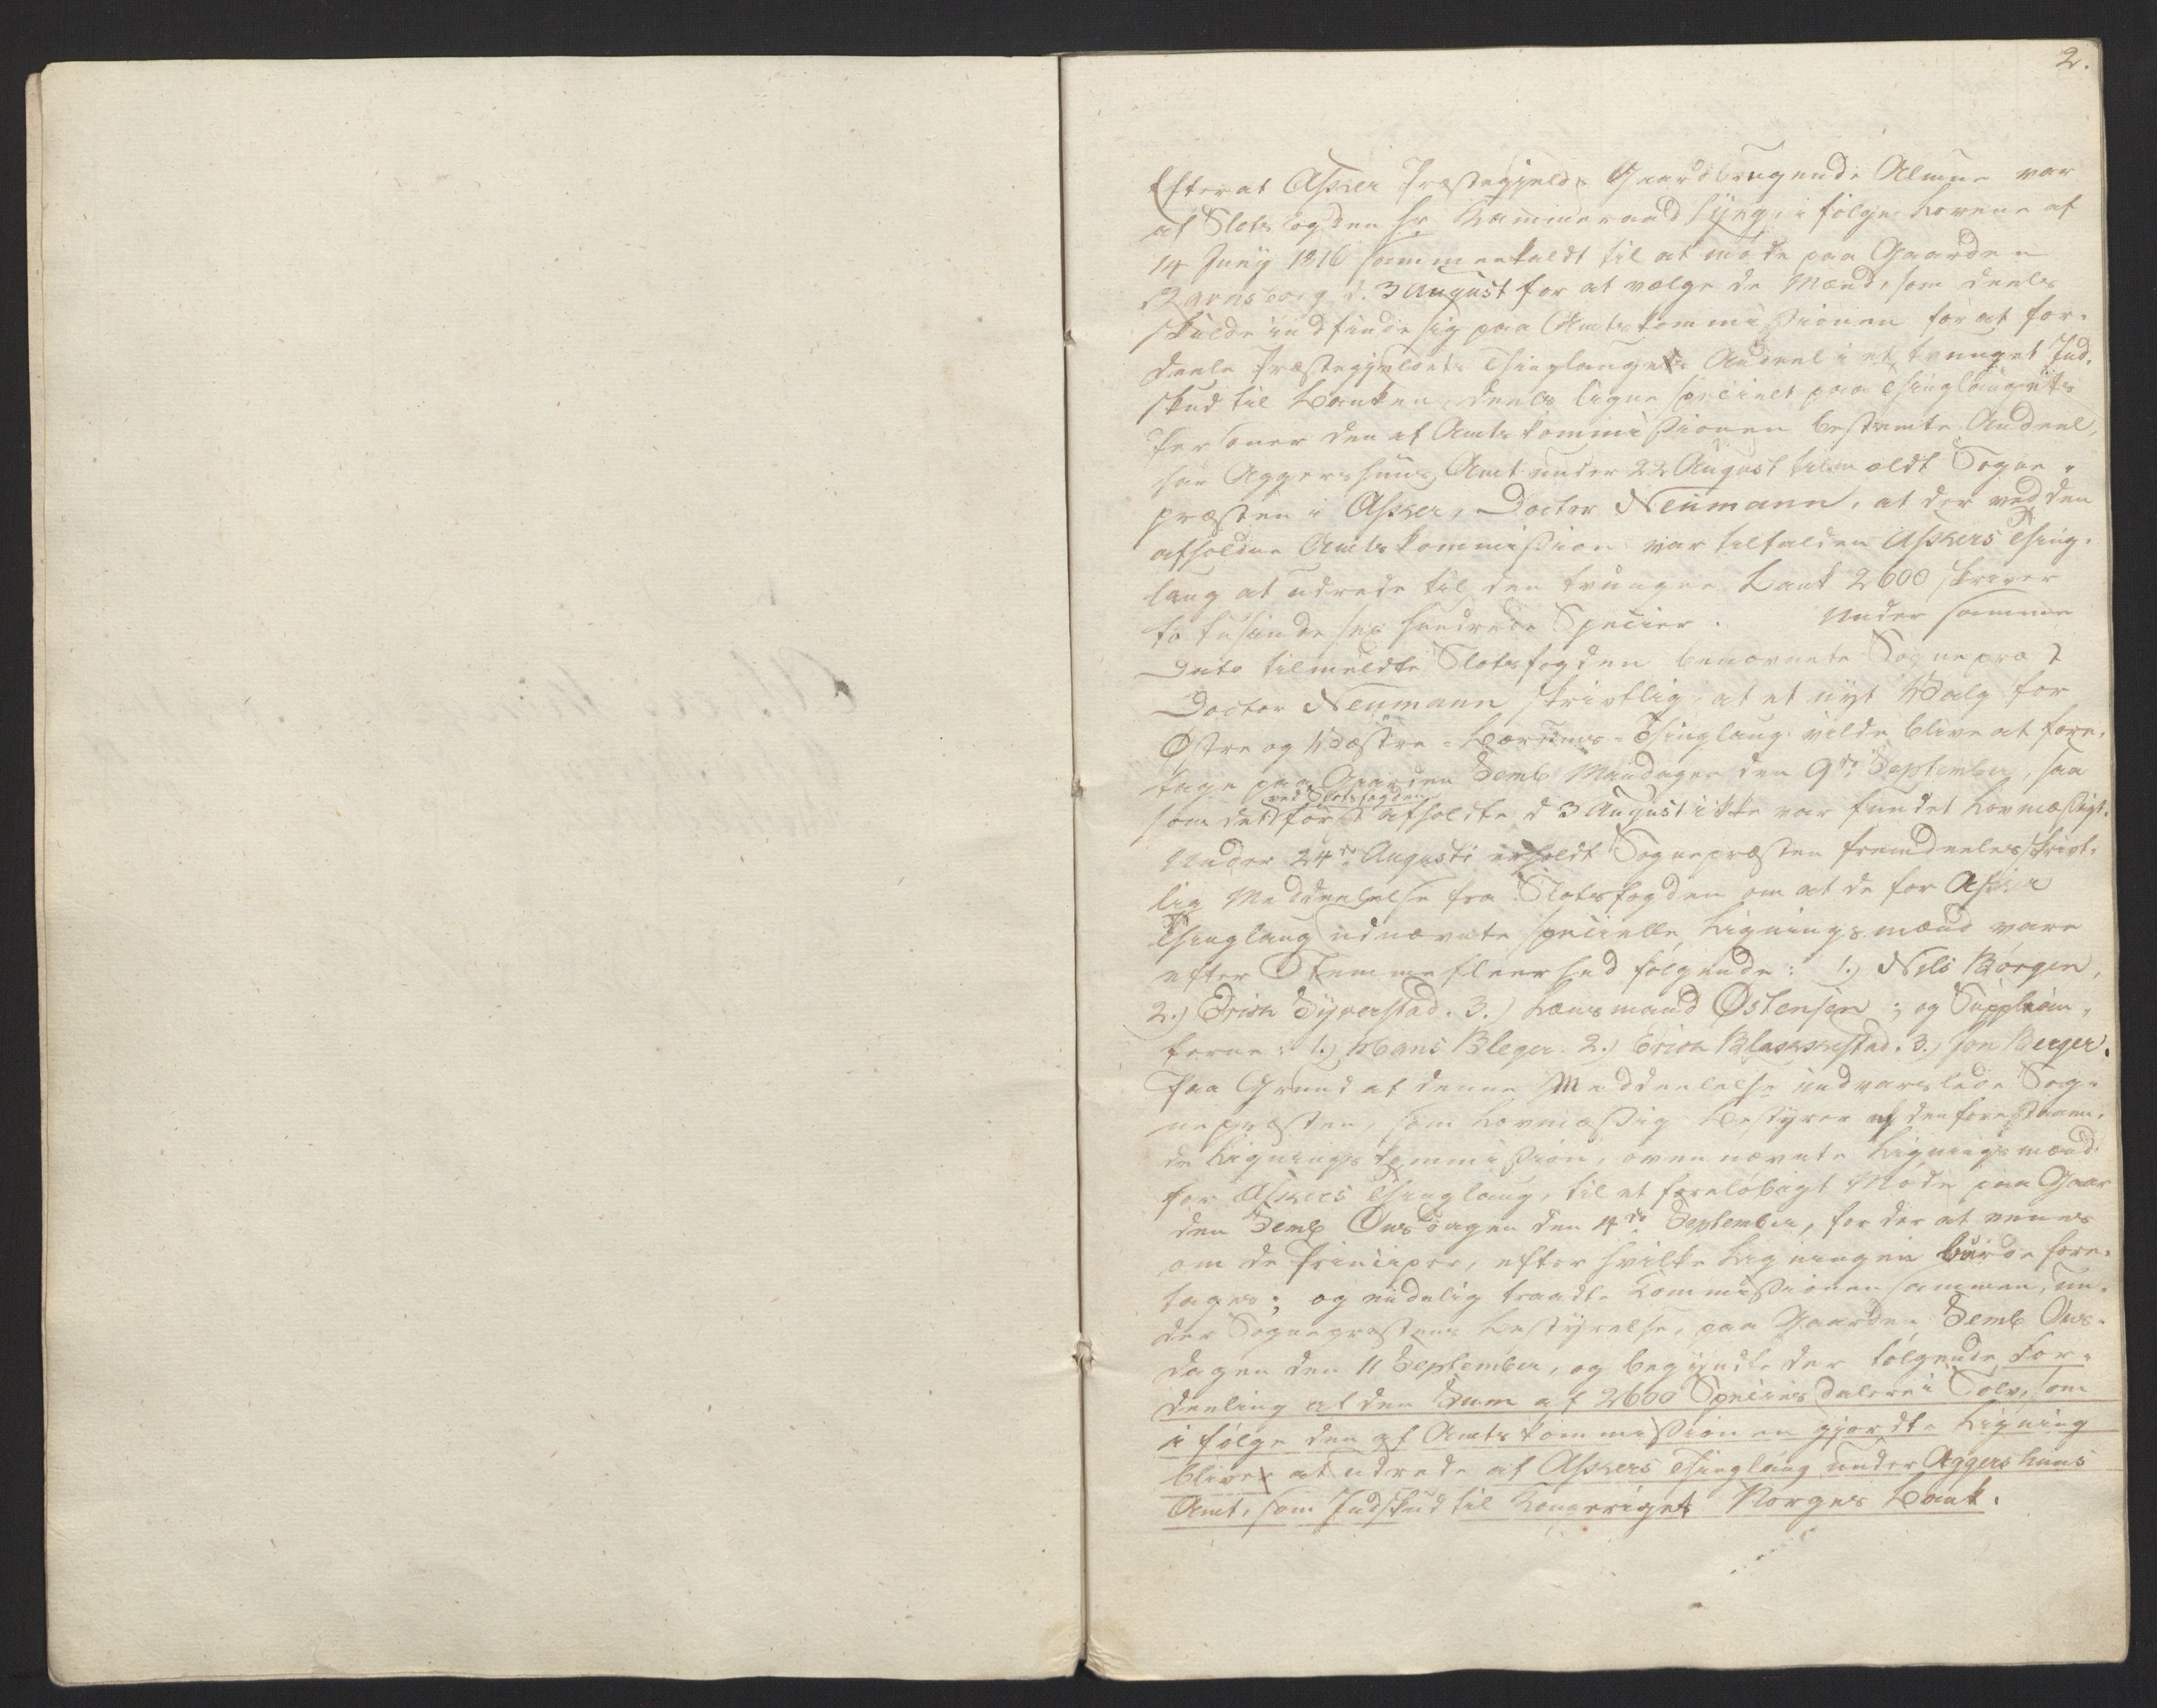 2.
Efterat Asker Præstegjelds Gaardbrugende Almue var
af Slotsfogden Hr Kammeraad Lyng, i følge Lovene af
14 Juny 1816 sammenkaldt til at møde paa Gaarden
Ravnsborg d. 3 August for at vælge de Mænd, som deels
skulde indfinde sig paa Amtskommissionen for at for-
deele Præstegjeldets Thinglaugets Andeel i et tvunget Ind-
skud til Banken, deels ligne specielt paa Thinglaugets
Personer den af Amtskommissionen bestemte Andeel,
har Aggershuus Amt under 22 August tilmeldt Sogne-
præsten i Asker, Doctor Neumann, at der ved den
afholdne Amtskommission var tilfalden Askers Thing-
laug at udrede til den tvungne Bank 2600 skriver
to tusinde sex hundrede Specier. Under samme
Dato tilmeldte Slotsfogden benævnte Sognepræst
Doctor Neumann skrivtlig, at et nyt Valg for
Østre og Wæstre-Bærums-Thinglaug vilde blive at fore-
tage paa Gaarden Semb Mandagen den 9de September, saa
ved Slotsfogden
som det først afholdte d 3 August ikke var fundet Lovmæssigt.
Under 24de Augusti erholdt Sognepræsten fremdeeles skrivt-
lig Meddeelelse fra Slotsfogden om at de for Asker
Thinglaug udnævnte specielle Ligningsmænd vare
efter Stemmefleerhed følgende: 1.) Nils Børgen,
2.) Erick Syverstad. 3.) Lænsmand Østensen; og Supplean-
terne: 1.) Hans Bleger. 2.) Erick Blackestad. 3.) Jon Berger.
Paa Grund af denne Meddeelelse indvarslede Sog-
nepræsten, som Lovmæssig Bestyrer af den forestaaen-
de Ligningskommission, ovennævnte Ligningsmænd
for Askers Thinglaug, til et foreløbigt Møde paa Gaar
den Semb Onsdagen den 4de September, for der at enes
om de Principer, efter hvilke Ligningen burde fore-
tages; og endelig traadte Kommissionen sammen, un-
der Sognepræstens Bestyrelse, paa Gaarden Semb Ons-
dagen den 11 September, og begyndte der følgende For-
deeling af den Sum af 2600 Speciesdalere i Sølv, som
i følge den af Amtskommissionen gjordte Ligning
bliver at udrede af Askers Thinglaug under Aggershuus
Amt, som Indskud til Kongeriget Norges Bank.